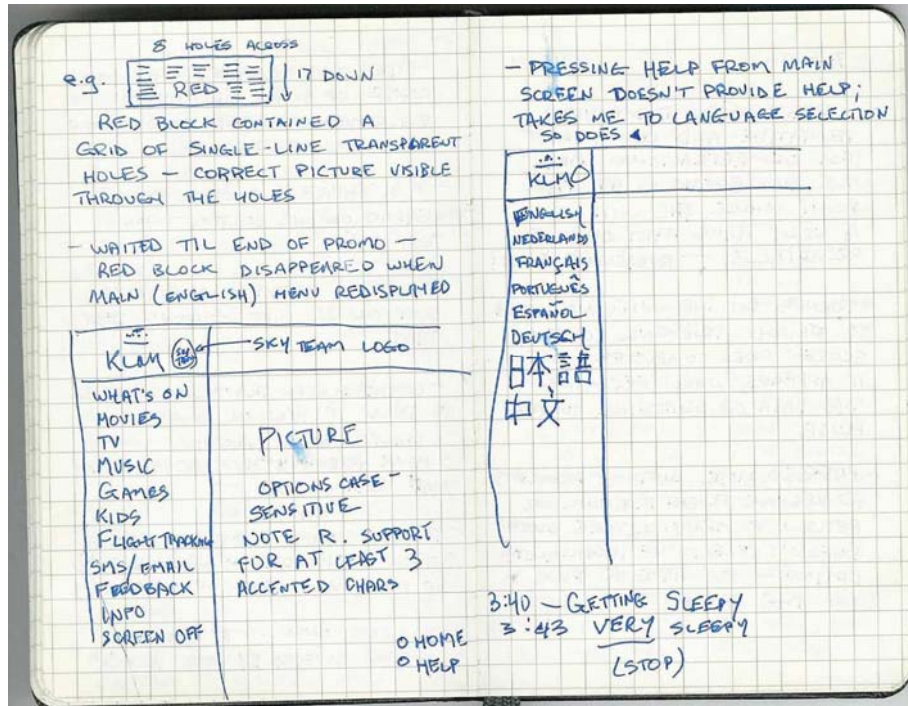 8 HOLES ACROSS
e.g.
RED
17 DOWN
RED BLOCK CONTAINED A
GRID OF SINGLE-LINE TRANSPARENT
HOLES — CORRECT PICTURE VISIBLE
THROUGH THE HOLES
- WAITED TIL END OF PROMO —
RED BLOCK DISAPPEARED WHEN
MAIN (ENGLISH) MENU REDISPLAYED
KLM
SKY TEAM
SKY TEAM LOGO
WHAT'S ON
MOVIES
TV
MUSIC
GAMES
KIDS
FLIGHT TRACKING
SMS/EMAIL
FEEDBACK
INFO
SCREEN OFF
PICTURE
OPTIONS CASE-
SENSITIVE
NOTE R. SUPPORT
FOR AT LEAST 3
ACCENTED CHARS
HOME
HELP
- PRESSING HELP FROM MAIN
SCREEN DOESN'T PROVIDE HELP;
TAKES ME TO LANGUAGE SELECTION
SO DOES ◄
KLM
ENGLISH
NEDERLANDS
FRANÇAIS
PORTUGUÊS
ESPAÑOL
DEUTSCH
日本語
中文
3:40 — GETTING SLEEPY
3:43 VERY SLEEPY
(STOP)